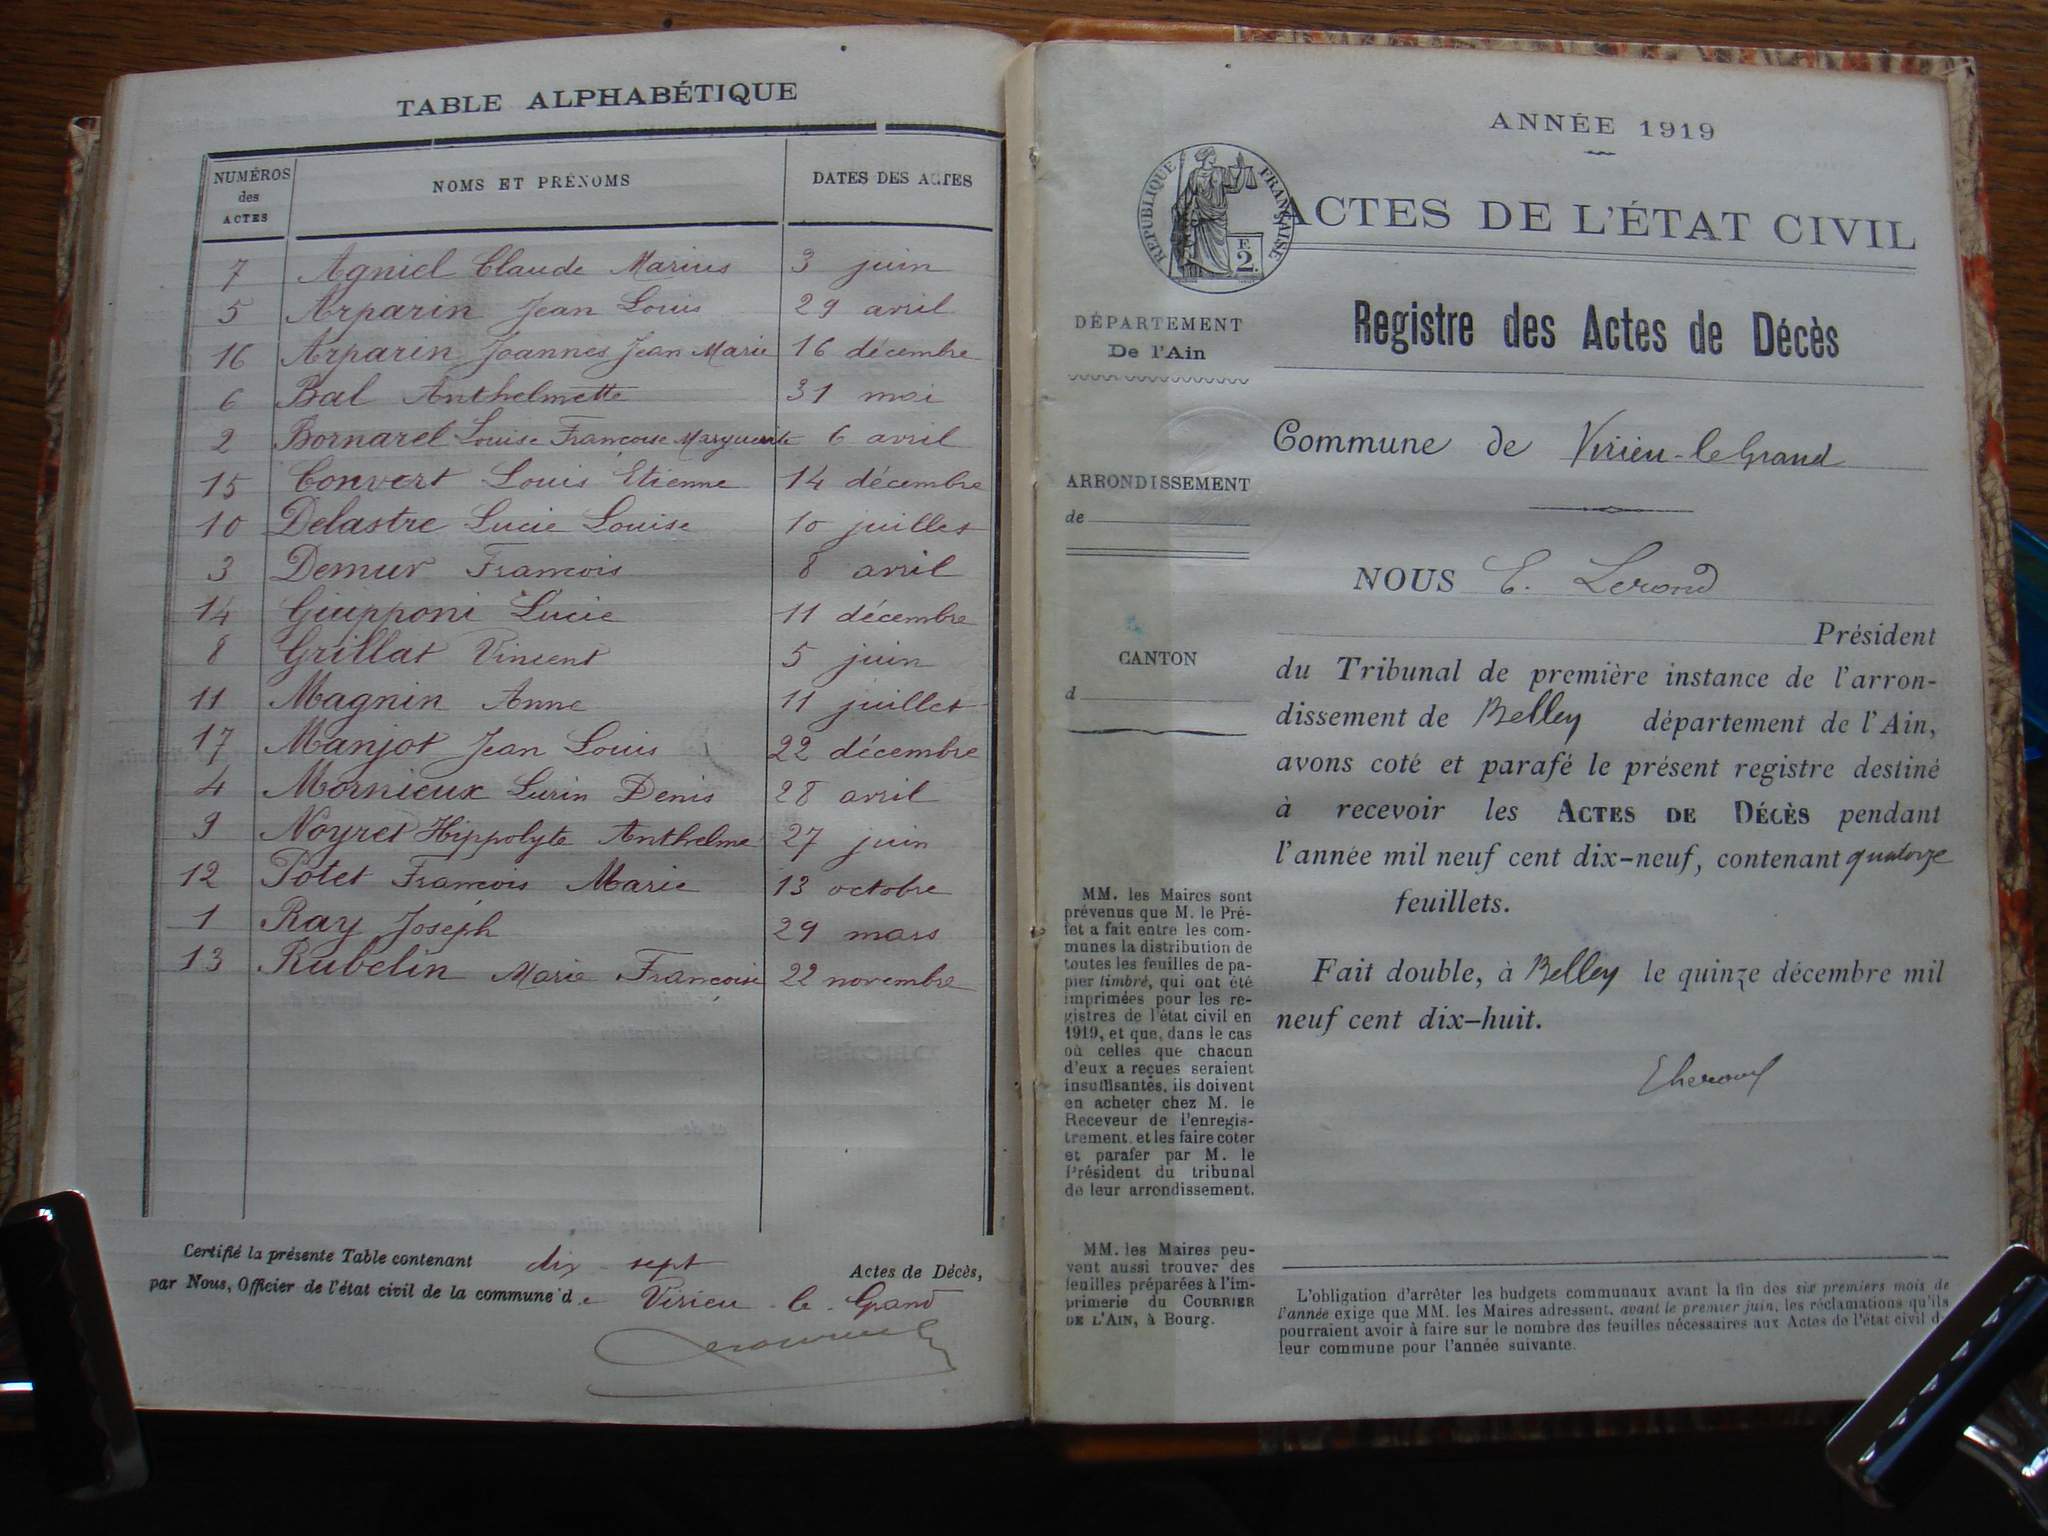 TABLE ALPHABÉTIQUE
NUMÉROS des ACTES NOMS ET PRÉNOMS DATES DES ACTES
7 Agniel Claude Marius 3 juin
5 Arparin Jean Louis 29 avril
16 Arparin Joannes Jean Marie 16 décembre
6 Bal Anthelmette 31 mai
2 Bornarel Louise Françoise Marguerite 6 avril
15 Convert Louis Etienne 14 décembre
10 Delastre Lucie Louise 10 juillet
3 Demur François 8 avril
14 Giupponi Lucie 11 décembre
8 Grillat Vincent 5 juin
11 Magnin Anne 11 juillet
17 Manjot Jean Louis 22 décembre
4 Mornieux Denis 28 avril
9 Noyret Hippolyte Anthelme 27 juin
12 Potet François Marie 13 octobre
1 Ray Joséph 29 mars
13 Rubelin Marie Françoise 22 novembre
Certifié la présente Table contenant dix-sept Actes de Décès,
par Nous, Officier de l'état civil de la commune de Virieu-le-Grand
ANNÉE 1919
RÉPUBLIQUE FRANÇAISE
F. 2.
ACTES DE L'ÉTAT CIVIL
Registre des Actes de Décès
DÉPARTEMENT
De l'Ain
ARRONDISSEMENT
de
CANTON
d
Commune de Virieu-le-Grand
NOUS E. Lerond
Président
du Tribunal de première instance de l'arron-
dissement de Belley département de l'Ain,
avons coté et parafé le présent registre destiné
à recevoir les ACTES DE DÉCÈS pendant
l'année mil neuf cent dix-neuf, contenant quatorze
feuillets.
Fait double, à Belley le quinze décembre mil
neuf cent dix-huit.
MM. les Maires sont
prévenus que M. le Pré-
fet a fait entre les com-
munes la distribution de
toutes les feuilles de pa-
pier timbré, qui ont été
imprimées pour les re-
gistres de l'état civil en
1919, et que, dans le cas
où celles que chacun
d'eux a reçues seraient
insuffisantes, ils doivent
en acheter chez M. le
Receveur de l'enregis-
trement, et les faire coter
et parafer par M. le
Président du tribunal
de leur arrondissement.
MM. les Maires peu-
vent aussi trouver des
feuilles préparées à l'im-
primerie du COURRIER
DE L'AIN, à Bourg.
L'obligation d'arrêter les budgets communaux avant la fin des six premiers mois de
l'année exige que MM. les Maires adressent, avant le premier juin, les réclamations qu'ils
pourraient avoir à faire sur le nombre des feuilles nécessaires aux Actes de l'état civil d
leur commune pour l'année suivante.